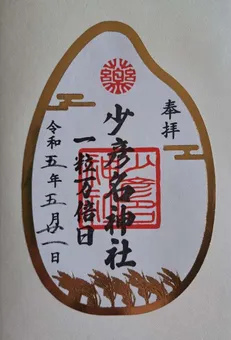 奉拝
薬
少彦名神社
一粒万倍日
令和五年五月廿一日